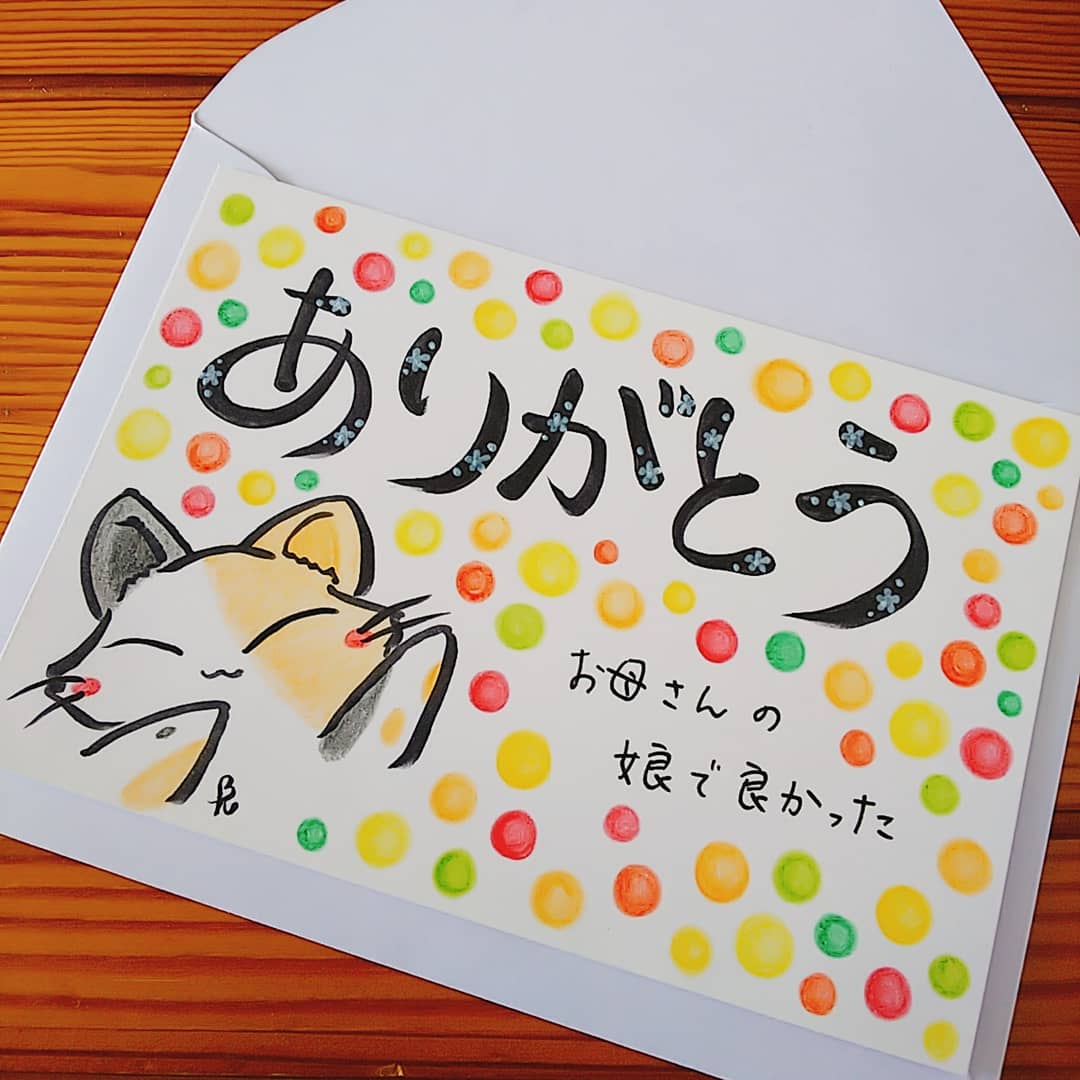 ありがとう
お母さんの
娘で良かった